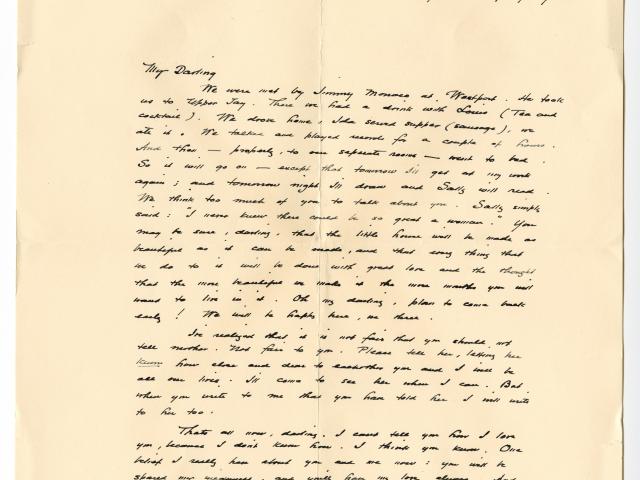 My Darling
We were met by Jimmy Monroe at Westport. He took
us to Upper Jay. There we had a drink with Louis (Tea and
cocktail). We drove home, Ida served supper (sausage), we
ate it. We talked and played records for a couple of hours.
And then — properly, to our separate rooms — went to bed.
So it will go on — except that tomorrow I'll get at my work
again; and tomorrow night I'll draw and Sally will read.
We think too much of you to talk about you. Sally simply
said: "I never knew there could be so great a woman." You
may be sure, darling, that the little house will be made as
beautiful as it can be made, and that every thing that
we do to it will be done with great love and the thought
that the more beautiful we make it the more months you will
want to live in it. Oh my darling, plan to come back
early! We will be happy here, we three.
I've realized that it is not fair that you should not
tell mother. Not fair to you. Please tell her, letting her
know how close and dear to each other you and I will be
all our lives. I'll come to see her when I can. But
when you write to me that you have told her I will write
to her too.
That's all now, darling. I can't tell you how I love
you, because I don't know how. I think you know. One
belief I really have about you and me now: you will be
shared my, and you'll have my love always. And